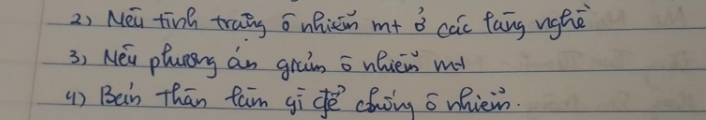 2) Nêu tình trạng ô nhiễm mt ở các làng nghề
3) Nêu phương án giảm ô nhiễm mt
4) Bản thân làm gì để chống ô nhiễm.